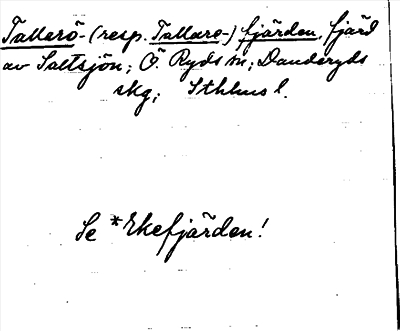 Tallarö- (resp. Tallare-) fjärden, fjärd
av Saltsjön; Ö. Ryds sn; Danderyds
skg; Sthlms l.
Se *Ekefjärden!